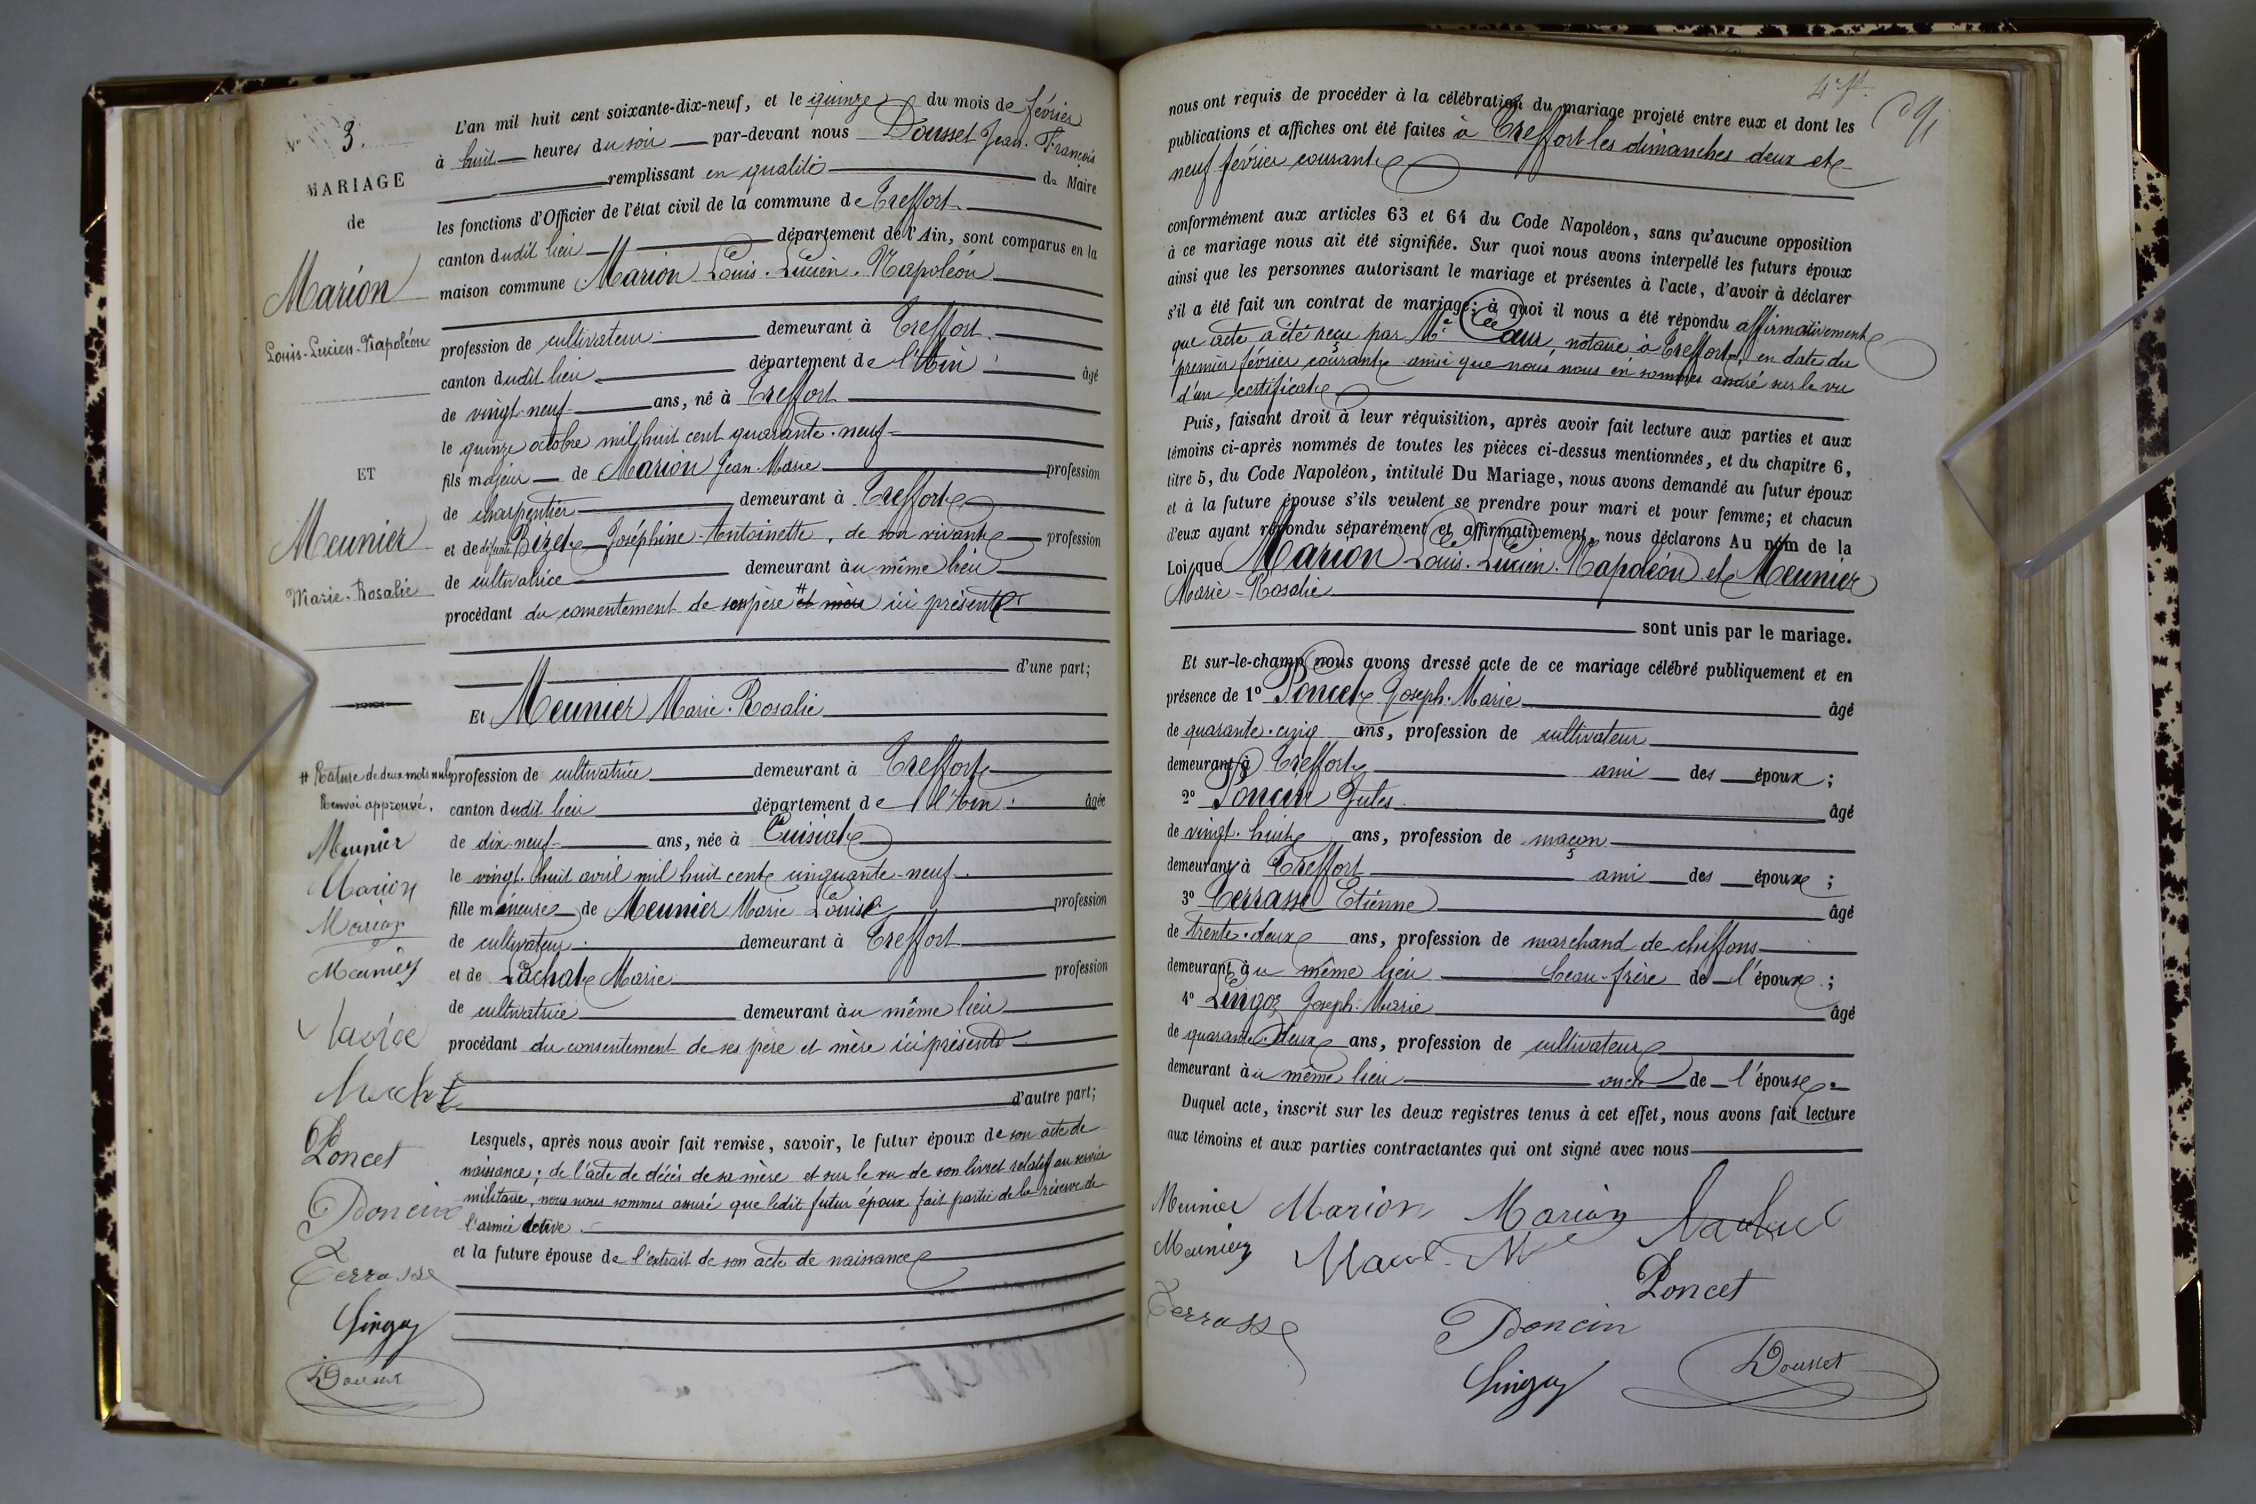 N° 3.
MARIAGE
de
Marion
Louis-Lucien-Napoléon
ET
Meunier
Marie-Rosalie
# Rature de deux mots nuls
Renvoi approuvé.
Meunier
Marion
Marion
Meunier
Poncet
Poncin
Terrasse
Lingoz
Dousset
L'an mil huit cent soixante-dix-neuf, et le quinze du mois de février
à huit heures du soir par-devant nous Dousset Jean-François
remplissant en qualité de Maire
les fonctions d'Officier de l'état civil de la commune de Treffort
canton dudit lieu département de l'Ain, sont comparus en la
maison commune Marion Louis-Lucien-Napoléon
profession de cultivateur demeurant à Treffort
canton dudit lieu département de l'Ain âgé
de vingt-neuf ans, né à Treffort
le quinze octobre mil huit cent quarante-neuf
fils majeur de Marion Jean-Marie profession
de charpentier demeurant à Treffort
et de défunte Bizet Joséphine-Antoinette, de son vivant profession
de cultivatrice demeurant au même lieu
procédant du consentement de son père # et mère ici présent
d'une part;
Et Meunier Marie-Rosalie
profession de cultivatrice demeurant à Treffort
canton dudit lieu département de l'Ain âgée
de dix-neuf ans, née à Cuisiat
le vingt-huit avril mil huit cent cinquante-neuf
fille mineure de Meunier Marie Louis profession
de cultivateur demeurant à Treffort
et de Lachat Marie profession
de cultivatrice demeurant au même lieu
procédant du consentement de ses père et mère ici présents
d'autre part;
Lesquels, après nous avoir fait remise, savoir, le futur époux de son acte de
naissance; de l'acte de décès de sa mère et sur le vu de son livret relatif au service
militaire, nous nous sommes assuré que ledit futur époux fait partie de la réserve de
l'armée active
et la future épouse de l'extrait de son acte de naissance
nous ont requis de procéder à la célébration du mariage projeté entre eux et dont les
publications et affiches ont été faites à Treffort les dimanches deux et
neuf février courant
conformément aux articles 63 et 64 du Code Napoléon, sans qu'aucune opposition
à ce mariage nous ait été signifiée. Sur quoi nous avons interpellé les futurs époux
ainsi que les personnes autorisant le mariage et présentes à l'acte, d'avoir à déclarer
s'il a été fait un contrat de mariage: à quoi il nous a été répondu affirmativement
que acte a été reçu par Me Cœur, notaire à Treffort, en date du
premier février courant ainsi que nous nous en sommes assuré sur le vu
d'un certificat
Puis, faisant droit à leur réquisition, après avoir fait lecture aux parties et aux
témoins ci-après nommés de toutes les pièces ci-dessus mentionnées, et du chapitre 6,
titre 5, du Code Napoléon, intitulé Du Mariage, nous avons demandé au futur époux
et à la future épouse s'ils veulent se prendre pour mari et pour femme; et chacun
d'eux ayant répondu séparément et affirmativement, nous déclarons Au nom de la
Loi, que Marion Louis-Lucien-Napoléon et Meunier
Marie-Rosalie
sont unis par le mariage.
Et sur-le-champ nous avons dressé acte de ce mariage célébré publiquement et en
présence de 1° Poncet Joseph-Marie âgé
de quarante-cinq ans, profession de cultivateur
demeurant à Treffort ami des époux;
2° Poncin Jules âgé
de vingt-huit ans, profession de maçon
demeurant à Treffort ami des époux;
3° Terrasse Etienne âgé
de trente-deux ans, profession de marchand de chiffons
demeurant au même lieu beau-frère de l'époux;
4° Lingoz Joseph-Marie âgé
de quarante-deux ans, profession de cultivateur
demeurant au même lieu oncle de l'épouse
Duquel acte, inscrit sur les deux registres tenus à cet effet, nous avons fait lecture
aux témoins et aux parties contractantes qui ont signé avec nous
Meunier Marion Marion
Meunier
Poncet
Terrasse
Poncin
Lingoz
Dousset